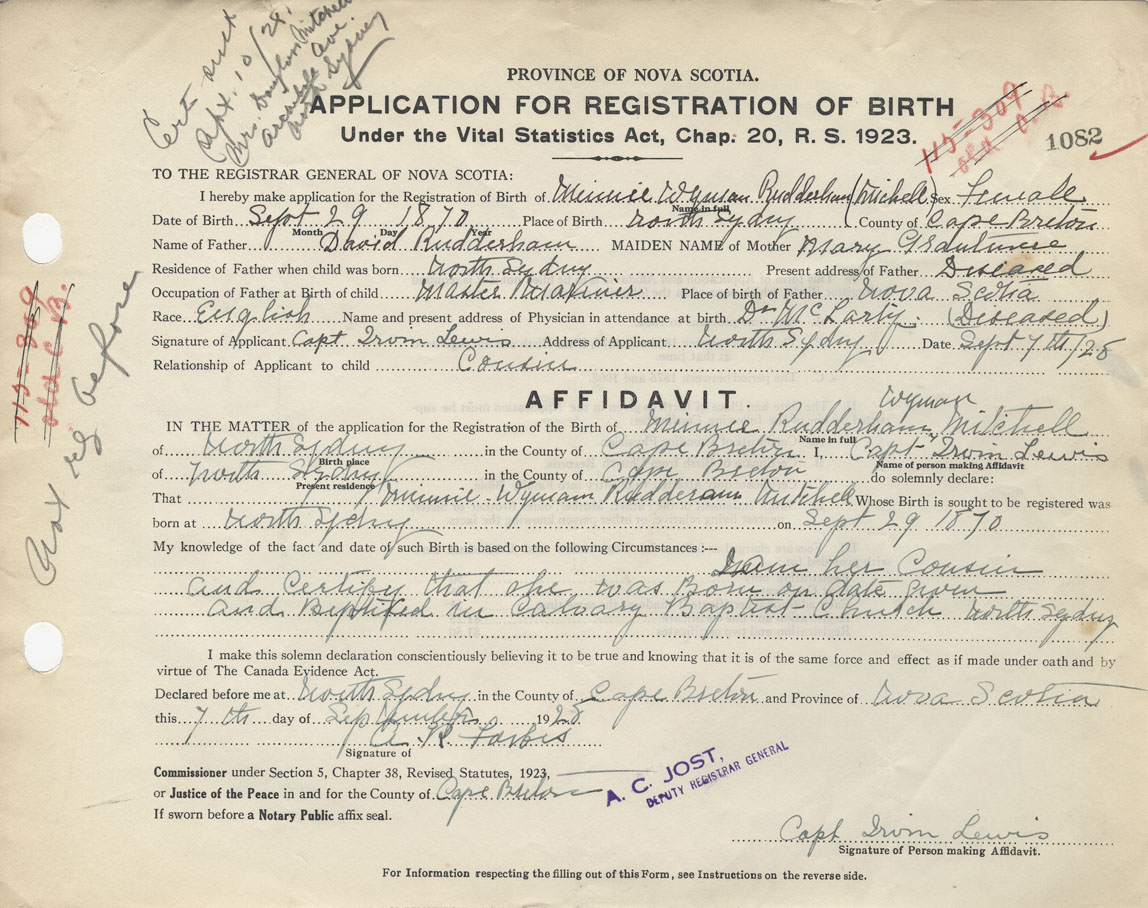 Cert sent
Sept. 10/28.
Mrs. Douglas Mitchell
Arcadile Ave.
North Sydney
PROVINCE OF NOVA SCOTIA.
APPLICATION FOR REGISTRATION OF BIRTH
Under the Vital Statistics Act, Chap. 20, R. S. 1923.
115-309
old C.B.
1082
TO THE REGISTRAR GENERAL OF NOVA SCOTIA:
I hereby make application for the Registration of Birth of Minnie Wyman Rudderham (Mitchell) Sex Female
Name in full
Date of Birth Sept 29 1870 Place of Birth North Sydney County of Cape Breton
Month Day Year
Name of Father David Rudderham MAIDEN NAME of Mother Mary
Residence of Father when child was born North Sydney Present address of Father Diseased
Occupation of Father at Birth of child Master Marinier Place of birth of Father Nova Scotia
Race English Name and present address of Physician in attendance at birth Dr McLarty. (Diseased)
Signature of Applicant Capt Irvm Lewis Address of Applicant North Sydny Date Sept 7th/28
Relationship of Applicant to child Cousin
115-309
old C.B.
Not reg before
AFFIDAVIT.
Wyman
IN THE MATTER of the application for the Registration of the Birth of Minnie Rudderham Mitchell
Name in full
of North Sydny in the County of Cape Breton I, Capt Irvm Lewis
Birth place Name of person making Affidavit
of North Sydny in the County of Cape Breton do solemnly declare:
Present residence
That Minnie Wyman Rudderam Mitchell Whose Birth is sought to be registered was
born at North Sydny on Sept 29 1870
My knowledge of the fact and date of such Birth is based on the following Circumstances :---
I am her Cousin
and Certify that she was Born on date given
and Baptised in Calvary Baptist Church North Sydny
I make this solemn declaration conscientiously believing it to be true and knowing that it is of the same force and effect as if made under oath and by
virtue of The Canada Evidence Act.
Declared before me at North Sydny in the County of Cape Breton and Province of Nova Scotia
this 7th day of September 1928
A. R. Forbes
Signature of
Commissioner under Section 5, Chapter 38, Revised Statutes, 1923,
or Justice of the Peace in and for the County of Cape Breton
If sworn before a Notary Public affix seal.
A. C. JOST,
DEPUTY REGISTRAR GENERAL
Capt Irvm Lewis
Signature of Person making Affidavit.
For Information respecting the filling out of this Form, see Instructions on the reverse side.